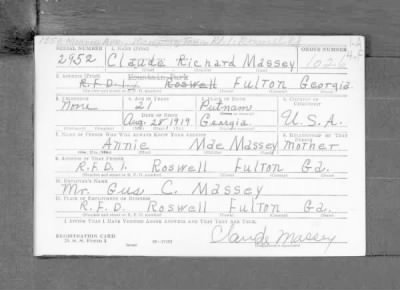 SERIAL NUMBER 1. NAME (Print) ORDER NUMBER
2952 Claude Richard Massey 1026
2. ADDRESS (Print) Mountain Park
R.F.D.1. Roswell Fulton Georgia
3. TELEPHONE 4. AGE IN YEARS 5. PLACE OF BIRTH 6. COUNTRY OF CITIZENSHIP
None 21 Putnam
DATE OF BIRTH
Aug. 28 1919 Georgia U.S.A.
7. NAME OF PERSON WHO WILL ALWAYS KNOW YOUR ADDRESS 8. RELATIONSHIP OF THAT PERSON
Annie Mae Massey mother
9. ADDRESS OF THAT PERSON
R.F.D.1. Roswell Fulton Ga.
10. EMPLOYER'S NAME
Mr. Gus C. Massey
11. PLACE OF EMPLOYMENT OR BUSINESS
R.F.D. Roswell Fulton Ga.
I AFFIRM THAT I HAVE VERIFIED ABOVE ANSWERS AND THAT THEY ARE TRUE.
REGISTRATION CARD
D. S. S. FORM 1
Claude Massey